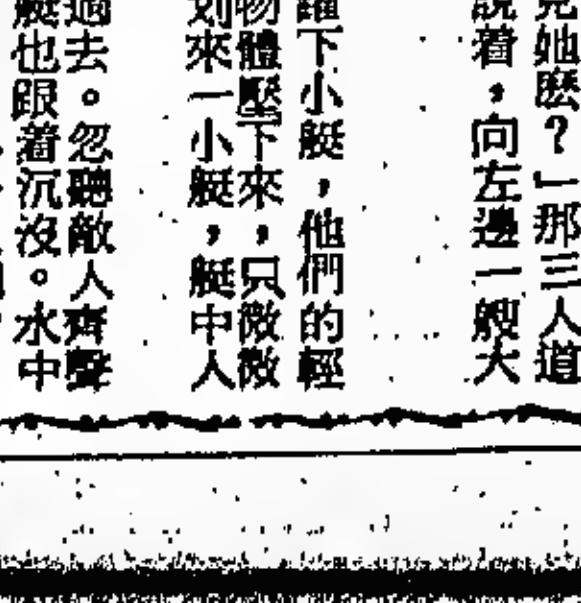 她麽？」那三人道
說着，向左邊一艘大
下小艇，他們的輕
物體壓下來，只微微
划來一小艇，艇中人
過去。忽聽敵人齊聲
艇也跟着沉沒。水中